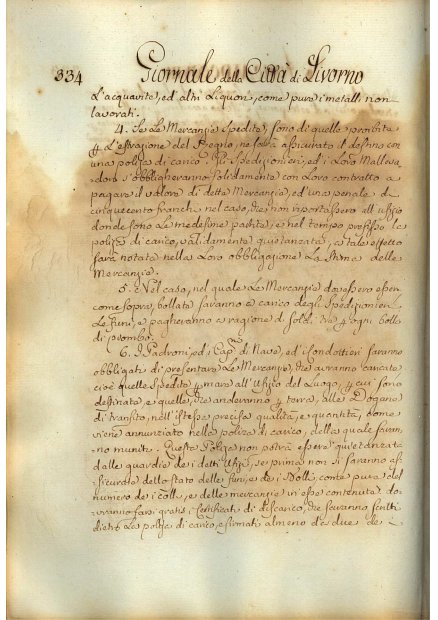 334 Giornale della Città di Livorno
L'acquavite, ed altri Liquori, come pure i metalli non
lavorati.
4. Se Le Mercanzie Spedite, sono di quelle proibite
Lestrazione del Regno, ne sarà assicurato il destino con
una polizza di carico. Gli Spedizionieri, ed i Loro Mallova
dori s'obbligheranno solidamente con Loro contratto a
pagare il valore di dette Mercanzie, ed una penale di
cinquecento franchi nel caso, che non riportassero all'ufizio
donde sono Le medesime partite, e nel tempo prefisso le
polizze di carico, validamente quietanzate, a tale effetto
sarà notata nella Loro obbligazione La Stima delle
Mercanzie.
5. Nel caso, nel quale Le Mercanzie dovessero esser
come sopra, bollate saranno a carico degli Spedizionieri
Le funi, e pagheranno a ragione di soldi tre ogni bollo
di piombo.
6. I Padroni, ed i Capni di Nave, ed i Condottieri saranno
obbligati di presentare Le Mercanzie, che avranno caricate
cioè quelle spedite mare all'Ufizio del Luogo, cui sono
destinate, e quelle, che anderanno terra, alle Dogane
di transito, nell'istessa precisa qualità, e quantità, come
viene annunziato nella polizza di carico, della quale saran
no muniti. Queste Polizze non potrà essere quietanzata
dalle guardie dei detti Ufizi, se prima non si saranno as
sicurate dello stato delle funi, e dei Bolli, conte pure del
numero dei colli, e delle mercanzie in essi contenute do
vranno farsi gratis i Certificati di discarico, che saranno scritti
dietro La polizza di carico, e firmati almeno da due de